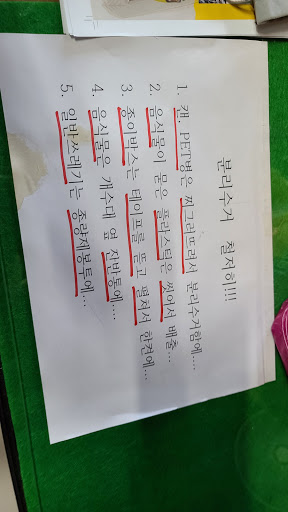 분리수거 철저히!!!
1. 캔. PET병은 찌그러뜨려서 분리수거함에....
2. 음식물이 묻은 플라스틱은 씻어서 배출...
3. 종이박스는 테이프를 뜯고 펼쳐서 한켠에...
4. 음식물은 개수대 옆 잔반통에....
5. 일반쓰레기는 종량제봉투에...